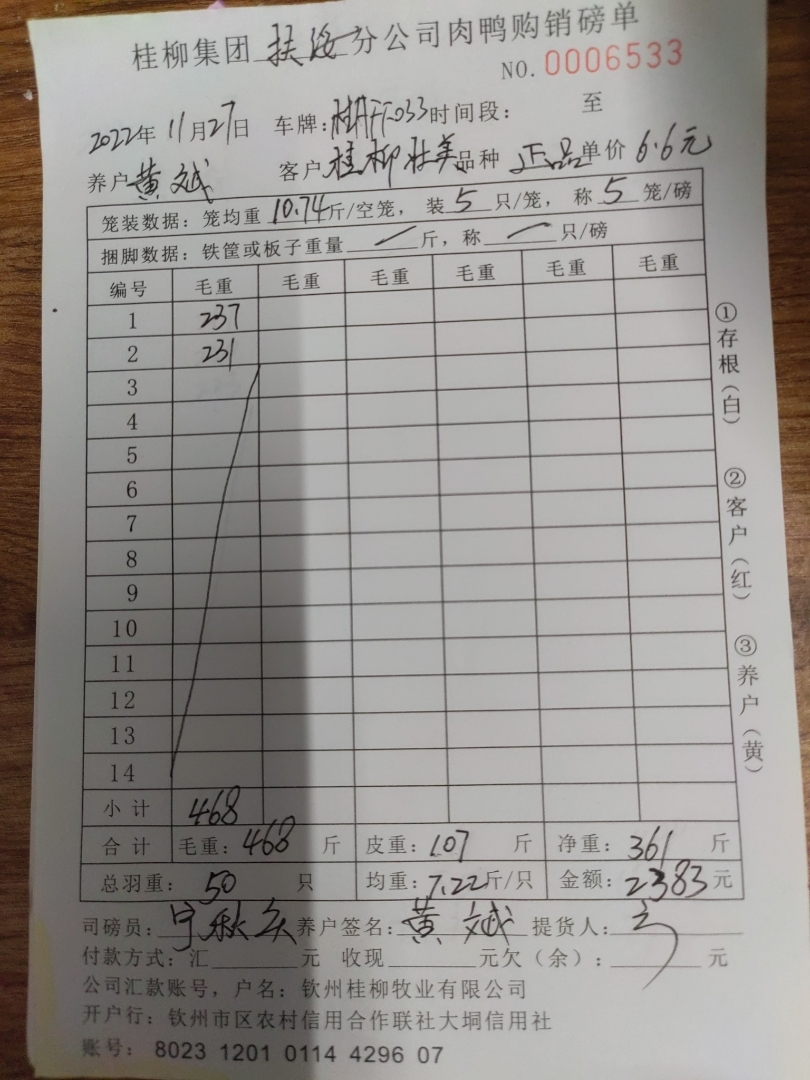 桂柳集团 扶绥 分公司肉鸭购销磅单
NO. 0006533
2022年 11月27日 车牌: 时间段: 至
养户 黄斌 客户 桂柳壮美 品种 正品 单价 6.6元
笼装数据: 笼均重 10.74 斤/空笼, 装 5 只/笼, 称 5 笼/磅
捆脚数据: 铁筐或板子重量 — 斤, 称 — 只/磅
编号 毛重 毛重 毛重 毛重 毛重 毛重
1 237
2 231
3
4
5
6
7
8
9
10
11
12
13
14
小计 468
合计 毛重: 468 斤 皮重: 107 斤 净重: 361 斤
总羽重: 50 只 均重: 7.22斤/只 金额: 2383 元
司磅员: 养户签名: 黄斌 提货人:
付款方式: 汇 元 收现 元欠(余): 元
公司汇款账号, 户名: 钦州桂柳牧业有限公司
开户行: 钦州市区农村信用合作联社大垌信用社
账号: 8023 1201 0114 4296 07
①存根(白)
②客户(红)
③养户(黄)